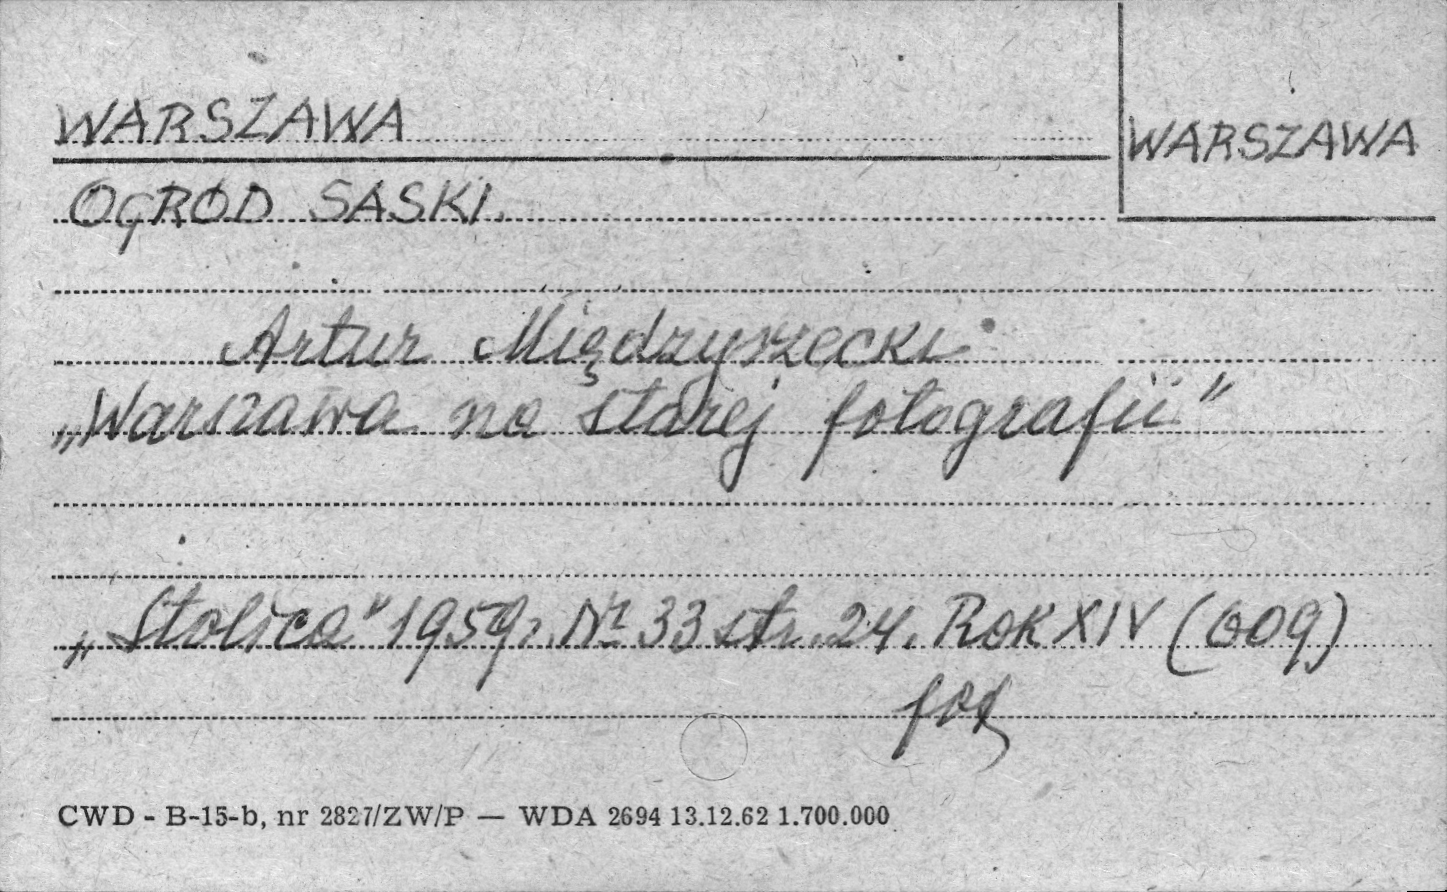 WARSZAWA
WARSZAWA
OGRÓD SASKI.
Artur Międzyrzecki
„Warszawa na starej fotografii"
„Stolica" 1959r. Nr 33 str. 24. Rok XIV (609)
fot
CWD - B-15-b, nr 2827/ZW/P — WDA 2694 13.12.62 1.700.000